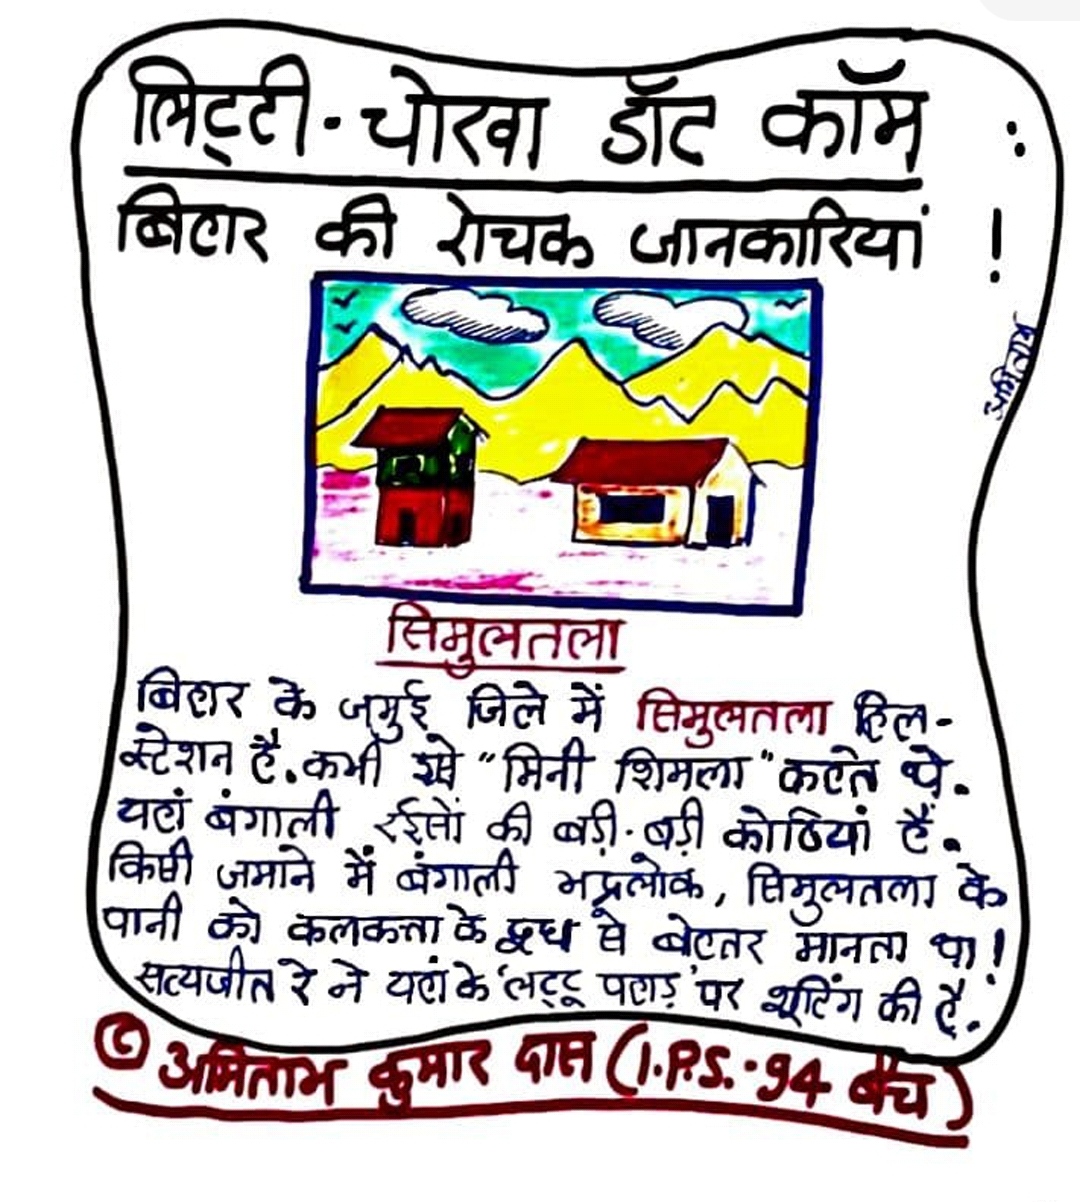 लिट्टी-चोखा डॉट कॉम :
बिहार की रोचक जानकारियां !
अमिताभ
सिमुलतला
बिहार के जमुई जिले में सिमुलतला हिल-
स्टेशन है. कभी इसे "मिनी शिमला" कहते थे.
यहां बंगाली रईसों की बड़ी-बड़ी कोठियां हैं.
किसी जमाने में बंगाली भद्रलोक, सिमुलतला के
पानी को कलकत्ता के दूध से बेहतर मानता था!
सत्यजीत रे ने यहां के 'लट्टू पहाड़' पर शूटिंग की है.
© अमिताभ कुमार दास (I.P.S.-94 बैच)